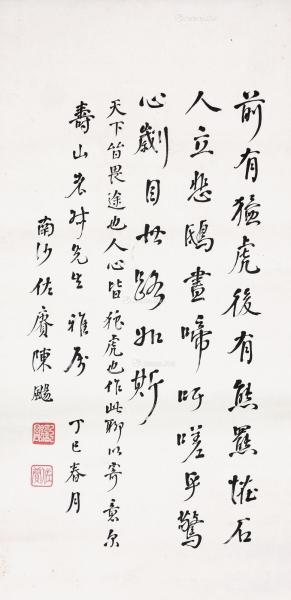 前有猛虎後有熊羆怪石
人立悲鴟晝啼吁嗟乎驚
心劌目世路如斯
天下皆畏途也人心皆猛虎也作此聊以寄意尔
壽山老
先生雅屬
丁巳春月
南沙佐賡陳颺